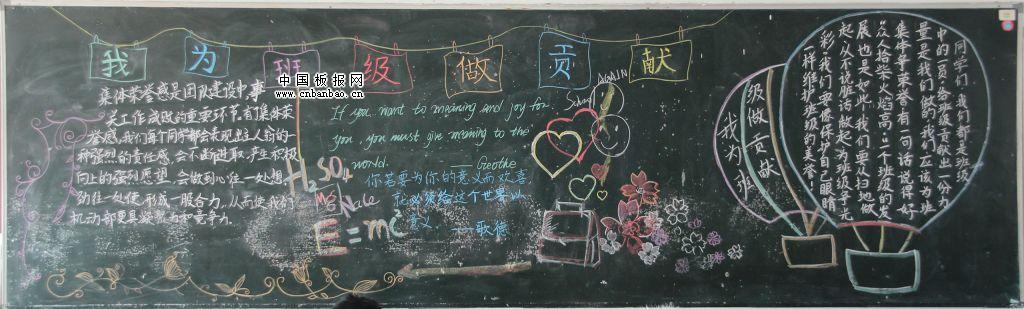 我为班级做贡献
中国板报网
www.cnbanbao.cn
集体荣誉感是团队建设中,事
关工作成败的重要环节,有集体荣
誉感,我们每个同学都会表现出主人翁的一
种强烈的责任感,会不断进取,产生积极
向上的强烈愿望,会做到心往一处想,
劲往一处使,形成一股合力,从而使我们
If you want to meaning and joy for
you, you must give meaning to the
world. —— Geothe
你若要为你的意义而欢喜,
就必须给这个世界以
意义。——歌德
H₂SO₄
Mg
Nale
E=mc²
AGAIN
我为班
级做贡献
同学们,我们都是班级
中的一员,给班级贡献出一份力
量是我们应该做的,我们应该为班
集体争荣誉,有一句话说得好
"众人拾柴火焰高",一个班级的发
展也是如此,我们要从扫地做
起,从不说脏话做起,为班级争光
彩,我们要像保护自己眼睛
一样维护班级的美誉!